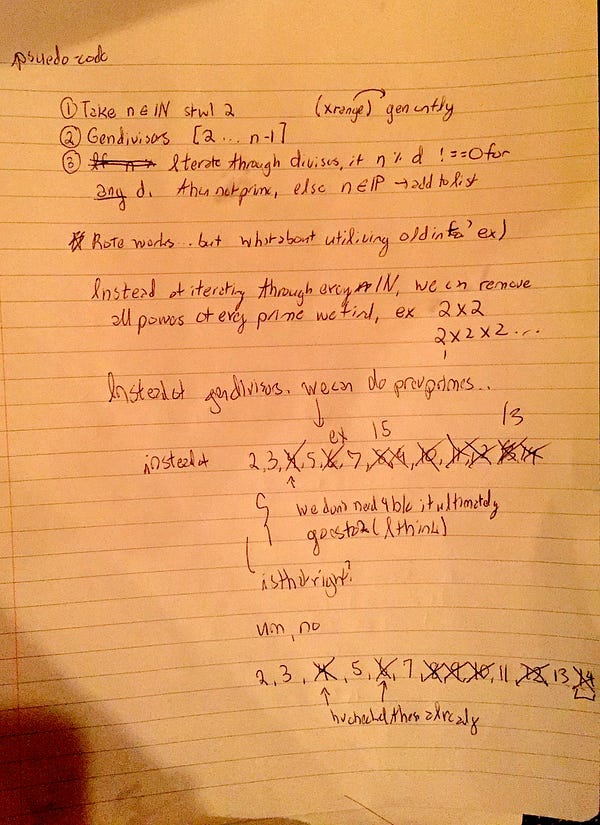 psuedo-code
① Take n ∈ IN start 2 (xrange) gen
② Gendivisors [2 ... n-1]
③ If n → Iterate through divisors, if n % d !==0 for
any d. then not prime, else n ∈ IP → add to list
Rote works... but what about utilizing old info? ex)
Instead of iterating through every IN, we can remove
all powers of every prime we find, ex 2 x 2
2 x 2 x 2 ...
Instead of gendivisors. we can do prevprimes...
ex 15 13
instead of 2, 3, 4, 5, 6, 7, 8, 9, 10, 11, 12, 13, 14
we don't need 4 b/c it ultimately
goes to 2 (I think)
is that right?
um, no
2, 3, 4, 5, 6, 7, 8, 9, 10, 11, 12, 13, 14
checked these already